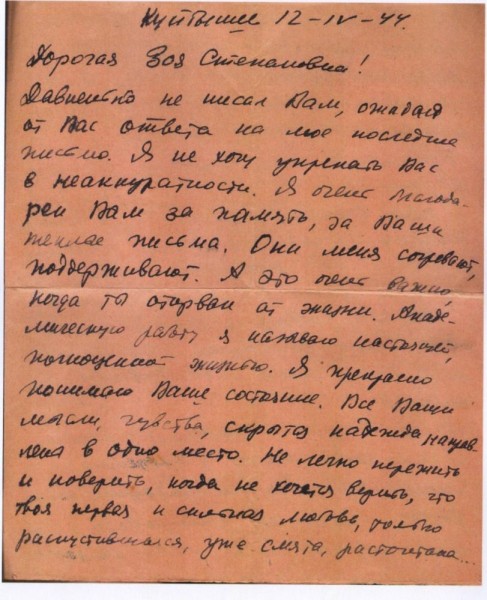 Куйбышев 12-IV-44.
Дорогая Зоя Степановна!
Давненько не писал Вам, ожидая
от Вас ответа на мое последнее
письмо. Я не хочу упрекать Вас
в неаккуратности. Я очень благода-
рен Вам за память, за Ваши
теплые письма. Они меня согревают,
поддерживают. А это очень важно
когда ты оторван от жизни. Акаде-
мическую работу я называю настоящей,
полноценной жизнью. Я прекрасно
понимаю Ваше состояние. Все Ваши
мысли, чувства, скрытая надежда, направ-
лена в одно место. Не легко пережить
и поверить, когда не хочется верить, что
твоя первая и сильная любовь, только
распустившаяся, уже смята, растоптана...